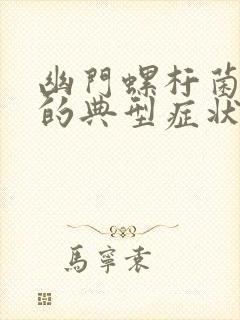 幽門螺杆菌
的典型症状
馬寧素